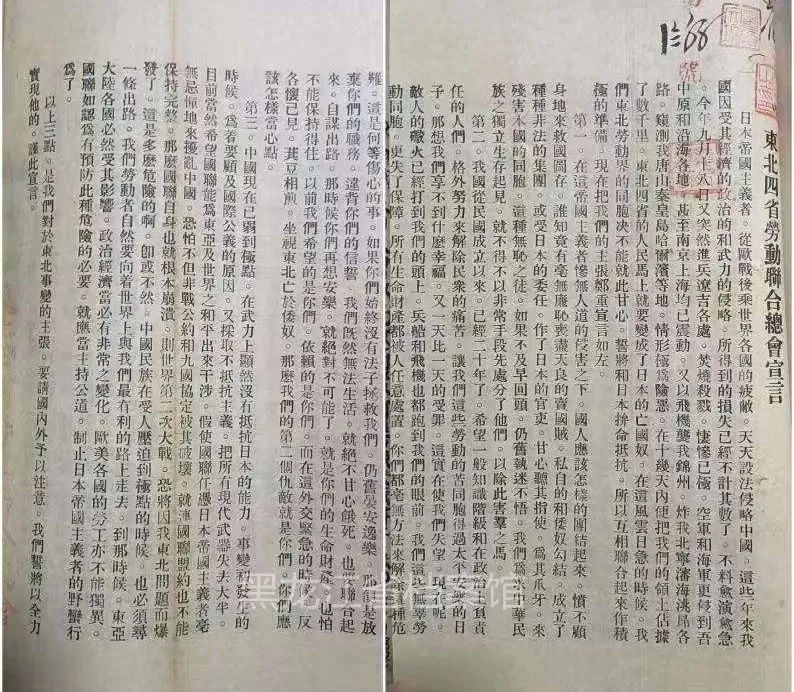 68
號
東北四省勞動聯合總會宣言
日本帝國主義者。從歐戰後乘世界各國的疲敝。天天設法侵略中國。這些年來我
國因受其經濟的政治的和武力的侵略。所得到的損失已經不計其數了。不料愈演愈急
。今年九月十八日又突然進兵遼吉各處。焚燒殺戮。悽慘已極。空軍和海軍更侵到吾
中原和沿海各地。甚至南京上海均已震動。又以飛機襲我錦州。炸我北寧瀋海洮昂各
路。窺測我唐山秦皇島哈爾濱等地。情形極為險惡。在十幾天內便把我們的領土佔據
了數千里。東北四省的人民馬上就要變成了日本的亡國奴。在這風雲日急的時候。我
們東北勞動界的同胞决不能就此甘心。誓將和日本拚命抵抗。所以互相聯合起來作積
極的準備。現在把我們的主張鄭重宣言如左。
第一。在這帝國主義者慘無人道的侵害之下。國人應該怎樣的團結起來。憤不顧
身地來救國圖存。誰知竟有毫無廉恥喪盡天良的賣國賊。私自的和倭奴勾結。成立了
種種非法的集團。或受日本的委任。作了日本的官吏。甘心聽其指使。為其爪牙。來
殘害本國的同胞。這種無恥之徒。如果不及早回頭。仍舊執迷不悟。我們為求中華民
族之獨立生存起見。就不得不以非常手段先處分了他們。以除此害羣之馬。
第二。我國從民國成立以來。已經二十年了。希望一般知識階級和在政治上負責
任的人們。格外努力來解除民衆的痛苦。讓我們這些勞動的苦同胞得過太平安樂的日
子。那想我們享不到什麼幸福。又一天比一天的受罪。這實在使我們失望。現在呢。
敵人的礮火已經打到我們的頭上。兵船和飛機也都跑到我們的眼前。我們這些辜勞
動同胞。更失了保障。所有生命財產都被人任意處置。你們都毫無方法來解這種危
難。這是何等傷心的事。如果你們始終沒有法子拯救我們。仍舊晏安逸樂。那便是放
棄你們的職務。違背你們的信誓。我們既然無法生活。就絕不甘心餓死。也要聯合起
來。自謀出路。那時候你們再想安樂。就絕對不可能了。就是你們的生命財產。也怕
不能保持得住。以前我們希望的是你們。依賴的是你們。而在這外交緊急的時候。反
各懷己見。萁豆相煎。坐視東北亡於倭奴。那麼我們的第二個仇敵就是你們。你們應
該怎樣當心點。
第三。中國現在已弱到極點。在武力上顯然沒有抵抗日本的能力。事變初發生的
時候。為着要顧及國際公義的原因。又採取不抵抗主義。把所有現代武器失去大半。
目前當然希望國聯能為東亞及世界之和平出來干涉。假使國聯任憑日本帝國主義者毫
無忌憚地來擾亂中國。恐怕不但非戰公約和九國協定被其破壞。就連國聯盟約也不能
保持完整。那麼國聯自身也就根本崩潰。則世界第二次大戰。恐將因我東北問題而爆
發了。這是多麼危險的啊。卽或不然。中國民族在受人壓迫到極點的時候。也必須尋
一條出路。我們勞動者自然要向着世界上與我們最有利的路上走去。到那時候。東亞
大陸各國必然受其影響。政治經濟當必有非常之變化。歐美各國的勞工亦不能獨異。
國聯如認為有預防此種危險的必要。就應當主持公道。制止日本帝國主義者的野蠻行
為了。
以上三點。是我們對於東北事變的主張。要請國內外予以注意。我們誓將以全力
實現他的。謹此宣言。
黑龙江省档案馆